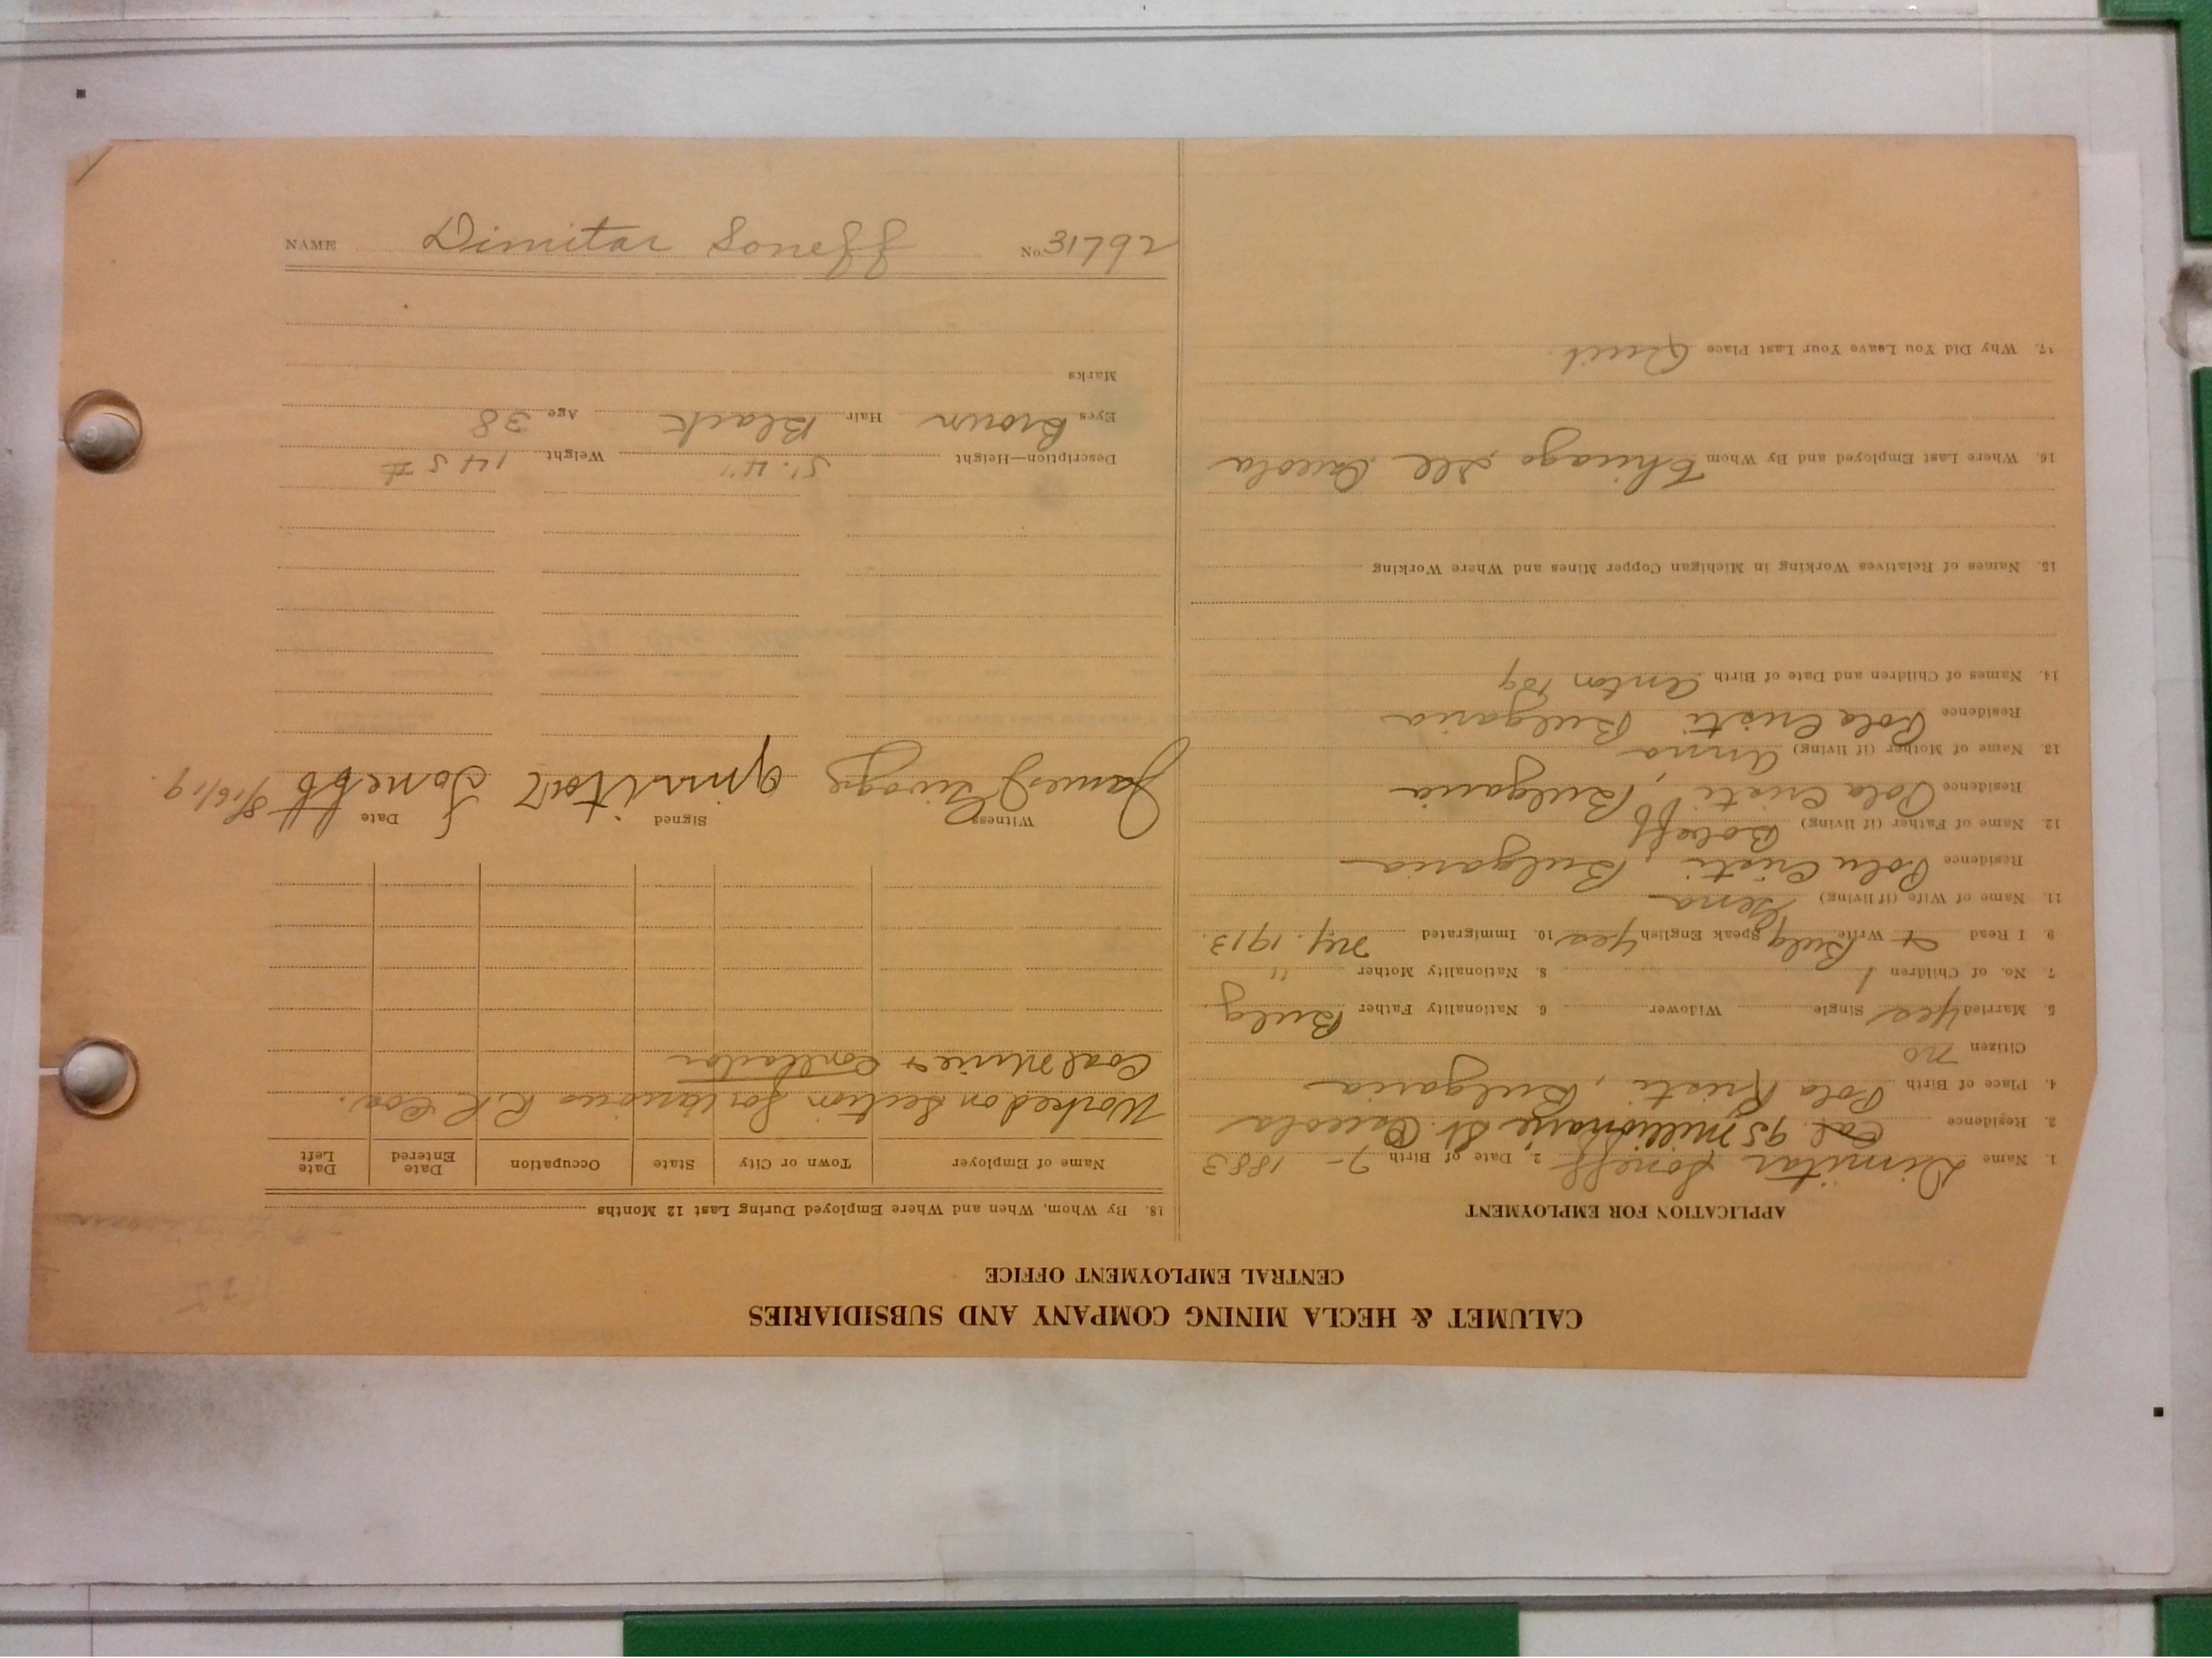 CALUMET & HECLA MINING COMPANY AND SUBSIDIARIES
CENTRAL EMPLOYMENT OFFICE
APPLICATION FOR EMPLOYMENT
1. Name Dimitar Soneff 2. Date of Birth 7- 1883
3. Residence Cal. 95 millionaie St. Osceola
4. Place of Birth Pola Kristi, Bulgaria
Citizen no
5. Married yes Single Widower 6. Nationality Father Bulg
7. No. of Children 1 8. Nationality Mother "
9. I Read + Write Bulg Speak English yes 10. Immigrated ny. 1913.
11. Name of Wife (if living) Gena
Residence Pola Cristi, Bulgaria
12. Name of Father (if living) Boleff
Residence Pola Cristi, Bulgaria
13. Name of Mother (if living) Anna
Residence Pola Cristi Bulgaria
14. Names of Children and Date of Birth Anton
15. Names of Relatives Working in Michigan Copper Mines and Where Working
16. Where Last Employed and By Whom Chicago Ill Osceola
17. Why Did You Leave Your Last Place Quit
18. By Whom, When and Where Employed During Last 12 Months
Name of Employer Town or City State Occupation Date Entered Date Left
Worked on Section for various R.R. Cos.
Coal Mine +
Witness James Signed Dimitar Soneff Date 8/16/19.
Description—Height 5'.4" Weight 145#
Eyes Brown Hair Black Age 38
Marks
NAME Dimitar Soneff No. 31792